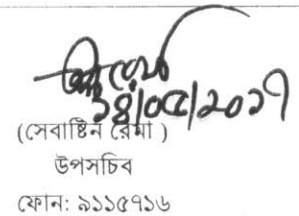 ১৪/০৫/২০১৭
(সেবাষ্টিন রেমা )
উপসচিব
ফোন: ৯১১৫৭১৬